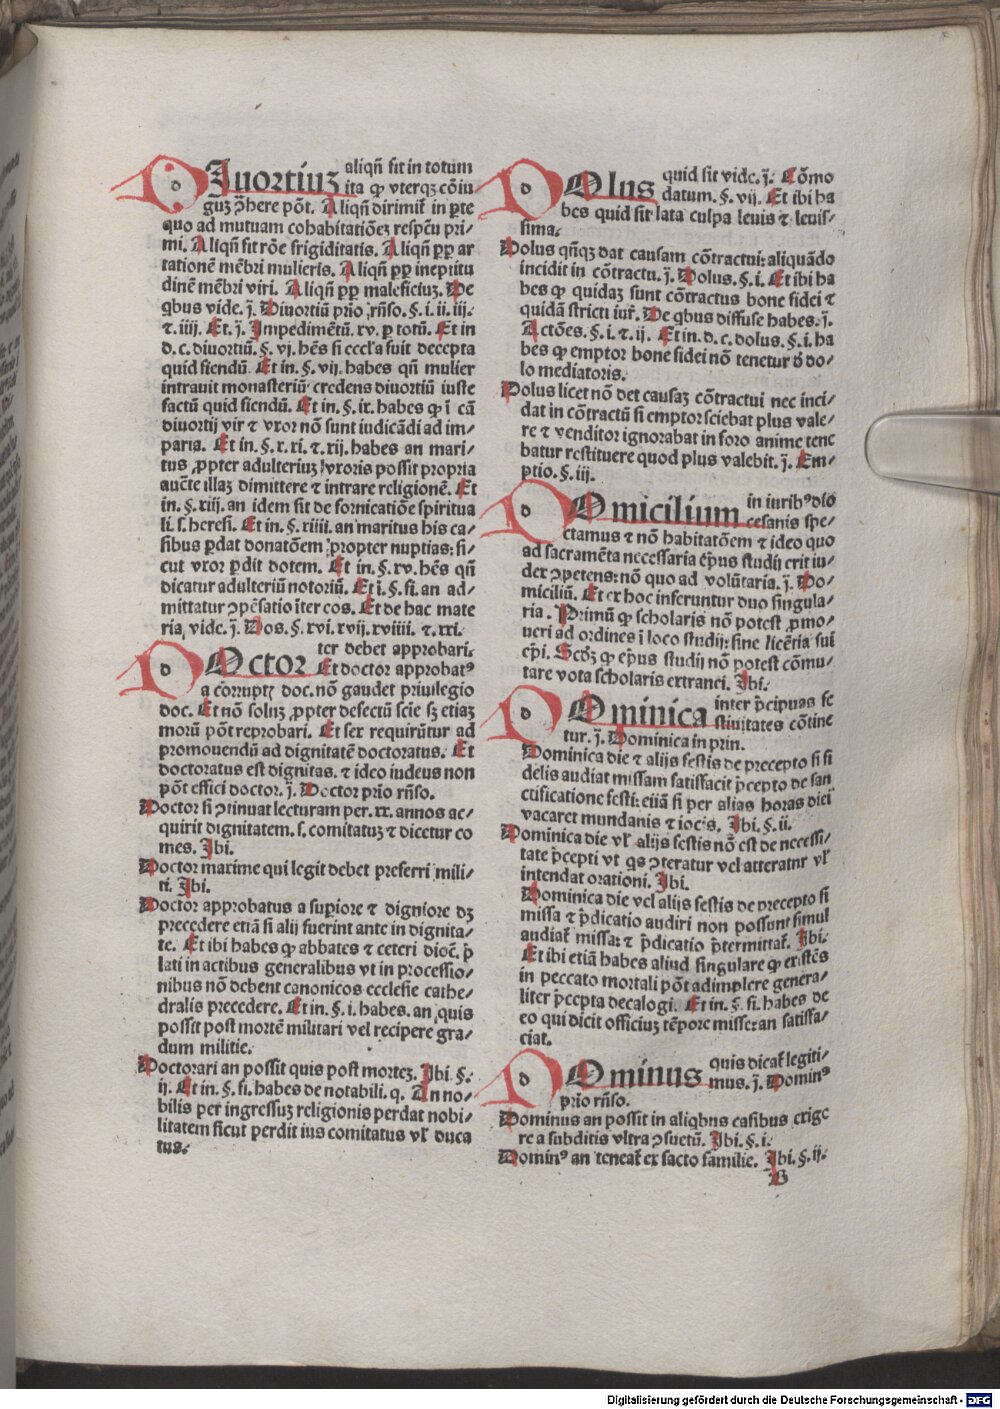 DIuortiuꝫ aliqñ sit in totum
ita ꝙ vterqꝫ cõiu
guꝫ ꝓhere põt. Aliqñ dirimit̃ in ꝑte
quo ad mutuam cohabitatiõeꝫ respcũ pri⸗
mi. Aliqñ sit rõe frigiditatis. Aliqñ ꝓp̱ ar
tationẽ mẽbri mulieris. Aliqñ ꝓp̱ ineptitu
dinẽ mẽbri viri. Aliqñ ꝓp̱ maleficiuꝫ. De
qbus vide. j̃. Diuortiũ prio rñso. §. i. ii. iij.
⁊. iiij. Et. j̃. Impedimẽtũ. xv. ꝑ totũ. Et in
d. c. diuortiũ. §. vj. hẽs si eccl'a fuit decepta
quid fiendũ. Et in. §. vij. habes qñ mulier
intrauit monasteriũ credens diuortiũ iuste
factũ quid fiendũ. Et in. §. ix. habes ꝙ ĩ cã
diuortij vir ⁊ vxor nõ sunt iudicãdi ad im⸗
paria. Et in. §. x. xi. ⁊. xij. habes an mari⸗
tus ꝓpter adulteriuꝫ vxoris possit propria
aucte illaꝫ dimittere ⁊ intrare religionẽ. Et
in. §. xiij. an idem sit de fornicatiõe spiritua
li. s. heresi. Et in. §. xiiij. an maritus his ca⸗
sibus ꝑdat donatõem propter nuptias: si⸗
cut vxor ꝑdit dotem. Et in. §. xv. hẽs qñ
dicatur adulteriũ notoriũ. Et ĩ. §. fi. an ad⸗
mittatur ꝯpẽsatio ĩter eos. Et de hac mate
ria, vide. j̃. Dos. §. xvi. xvij. xviiii. ⁊. xxi.
DOctor ter debet approbari:
Et doctor approbatꝰ
a corrupt doc. nõ gaudet priuilegio
doc. Et nõ soluꝫ ꝓpter defectũ scie sꝫ etiaꝫ
morũ põt reprobari. Et sex requirũtur ad
promouendũ ad dignitatẽ doctoratus. Et
doctoratus est dignitas. ⁊ ideo iudeus non
põt effici doctor. j̃. Doctor prio rñso.
Doctor si ꝯtinuat lecturam per. xx. annos ac⸗
quirit dignitatem. s. comitatuꝫ ⁊ dicetur co
mes. Ibi.
Doctor maxime qui legit debet preferri mili⸗
ti. Ibi.
Doctor approbatus a suꝑiore ⁊ digniore dꝫ
precedere etiã si alij fuerint ante in dignita⸗
te. Et ibi habes ꝙ abbates ⁊ ceteri dioc. p̃
lati in actibus generalibus vt in processio⸗
nibus nõ debent canonicos ecclesie cathe⸗
dralis precedere. Et in. §. i. habes. an quis
possit post mortẽ militari vel recipere gra⸗
dum militie.
Doctorari an possit quis post morteꝫ. Ibi. §.
ij. Et in. §. fi. habes de notabili. q. An no⸗
bilis per ingressuꝫ religionis perdat nobi⸗
litatem sicut perdit ius comitatus vl' duca
tus.
DOlus quid sit vide. j̃. Cõmo
datum. §. vij. Et ibi ha
bes quid sit lata culpa leuis ⁊ leuis⸗
sima.
Dolus qñqꝫ dat causam cõtractui: aliquãdo
incidit in cõtractu. j̃. Dolus. §. i. Et ibi ha
bes ꝙ quidaꝫ sunt cõtractus bone fidei ⁊
quidã stricti iur̃. De qbus diffuse habes. j̃.
Actões. §. i. ⁊. ij. Et in. d. c. dolus. §. i. ha
bes ꝙ emptor bone fidei nõ tenetur ð do⸗
lo mediatoris.
Dolus licet nõ det causaꝫ cõtractui nec inci⸗
dat in cõtractũ si emptor sciebat plus vale⸗
re ⁊ venditor ignorabat in foro anime tene
batur restituere quod plus valebit. j̃. Em⸗
ptio. §. iij.
DOmicilium in iuribꝰ dio
cesanis spe⸗
ctamus ⁊ nõ habitatõem ⁊ ideo quo
ad sacramẽta necessaria ep̃us studij erit iu⸗
dex ꝯpetens: nõ quo ad volũtaria. j̃. Do⸗
miciliũ. Et ex hoc inferuntur duo singula⸗
ria. Primũ ꝙ scholaris nõ potest ꝓmo⸗
ueri ad ordines ĩ loco studij: sine licẽtia sui
ep̃i. Scdꝫ ꝙ ep̃us studij nõ potest cõmu⸗
tare vota scholaris extranei. Ibi.
DOminica inter p̃cipuas fe
stiuitates cõtine
tur. j̃. Dominica in prin.
Dominica die ⁊ alijs festis de precepto si fi
delis audiat missam satisfacit p̃cepto de san
ctificatione festi: etiã si per alias horas diei
vacaret mundanis ⁊ iocis. Ibi. §. ii.
Dominica die vl' alijs festis nõ est de necessi⸗
tate p̃cepti vt qs ꝯteratur vel atteratur vl'
intendat orationi. Ibi.
Dominica die vel alijs festis de precepto si
missa ⁊ p̃dicatio audiri non possunt simul
audiat̃ missa: ⁊ p̃dicatio p̃termittat̃. Ibi.
Et ibi etiã habes aliud singulare ꝙ existẽs
in peccato mortali põt adimplere genera⸗
liter p̃cepta decalogi. Et in. §. fi. habes de
eo qui dicit officiuꝫ tẽpore misse: an satisfa⸗
ciat.
DOminus quis dicat̃ legiti⸗
mus. j̃. Dominꝰ
prio rñso.
Dominus an possit in aliqbus casibus exige
re a subditis vltra ꝯsuetũ. Ibi. §. i.
Dominꝰ an teneat̃ ex facto familie. Ibi. §. ij.
Digitalisierung gefördert durch die Deutsche Forschungsgemeinschaft - DFG